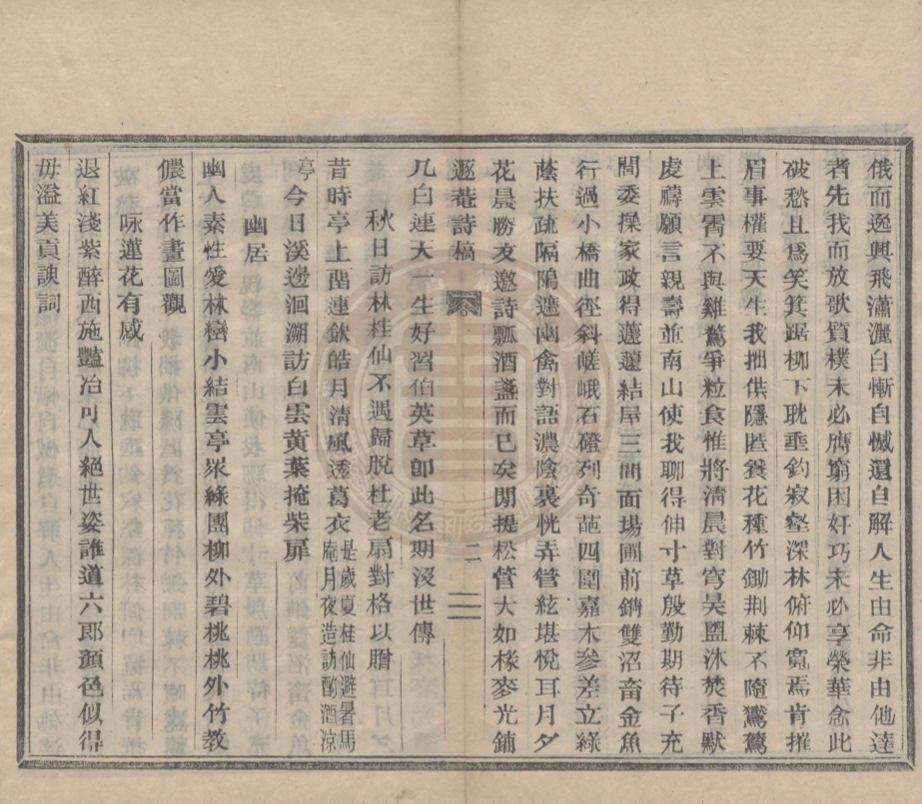 俄而逸興飛瀟灑自慚自憾還自解人生由命非由他達
者先我而放歌質樸未必膺窮困好巧未必享榮華念此
破愁且爲笑箕踞柳下耽垂釣寂壑深林俯仰寬焉肯摧
眉事權要天生我拙供隱匿養花種竹鋤荆棘不隨鴛鷺
上雲霄不與雞鶩爭粒食惟將清晨對穹昊盟沐焚香默
處禱願言親壽並南山使我聊得伸寸草殷勤期待子充
閭委操家政得蘧蘧結屋三間面場圃前鑿雙沼畜金魚
行過小橋曲徑斜嵯峨石磴列奇葩四圍嘉木參差立綠
蔭扶疏隔隖遮幽禽對語濃陰裏恍弄管絃堪悅耳月夕
花晨勝友邀詩瓢酒盞而已矣閒提松管大如椽麥光鋪
遯菴詩稿 二
几白連天一生好習伯英草卽此名期沒世傳
秋日訪林桂仙不遇歸脫杜老扇對格以贈
昔時亭上酣連飲皓月清風透葛衣是歲夏桂仙避暑馬
庵月夜造訪酌酒涼
亭今日溪邊洄溯訪白雲黄葉掩柴扉
幽居
幽人素性愛林巒小結雲亭眾綠團柳外碧桃桃外竹教
儂當作畫圖觀
咏蓮花有感
退紅淺紫醉西施豔冶可人絕世姿誰道六郎顏色似得
毋溢美貢諛詞